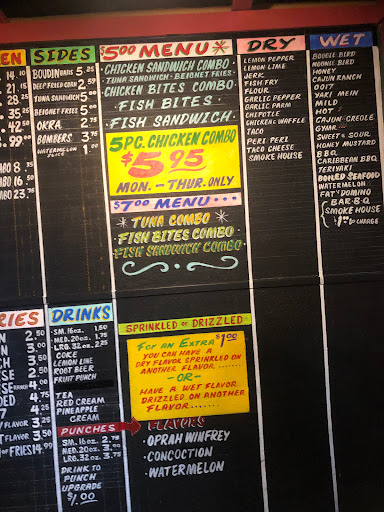 EN
14.10
21.15
28.
35
42.
99
BO 8.35
BO 16.50
BO 23.75
SIDES
BOUDIN BALLS 5.25
DEEP FRIED CORN 2.59
TUNA SANDWICH
BEIGNET FRIES
OKRA 2.75
BOMBERS 3.75
WATERMELON JUICE 1.00
$5.00 MENU
CHICKEN SANDWICH COMBO
TUNA SANDWICH · BEIGNET FRIES
CHICKEN BITES COMBO
FISH BITES
FISH SANDWICH
5PC. CHICKEN COMBO
$5.95
MON. - THUR. ONLY
$7.00 MENU...
TUNA COMBO
FISH BITES COMBO
FISH SANDWICH COMBO
DRY
LEMON PEPPER
LEMON LIME
JERK
FISH FRY
FLOUR
GARLIC PEPPER
GARLIC PARM
CHIPOTLE
CHICKEN & WAFFLE
TACO
PERI PERI
TACO CHEESE
SMOKE HOUSE
WET
HONEY
CAJUN RANCH
YAKI MEIN
MILD
HOT
CAJUN-CREOLE
SWEET & SOUR
HONEY MUSTARD
BBQ
CARIBBEAN BBQ
TERIYAKI
BOILED SEAFOOD
WATERMELON
FATS DOMINO
BAR-B-Q
SMOKE HOUSE
$1.00 TO CHARGE
RIES
N 2.50
3.00
N 3.00
SE 2.50
SE 2.50
4.00
DED 4.50
7 4.25
FLAVOR 3.50
FLAVOR 3.50
OF FRIES 14.99
DRINKS
SM. 16oz. 1.50
MED. 20oz. 1.75
LRG. 32oz. 2.25
COKE
LEMON LINE
ROOT BEER
FRUIT PUNCH
TEA
RED CREAM
PINEAPPLE
CREAM
PUNCHES
SM. 16oz. 2.75
MED. 20oz. 3.00
LRG. 32oz. 3.75
DRINK TO
PUNCH
UPGRADE
$1.00
SPRINKLED OR DRIZZLED
FOR AN EXTRA $1.00
YOU CAN HAVE A
DRY FLAVOR SPRINKLED ON
ANOTHER FLAVOR
-OR-
HAVE A WET FLAVOR
DRIZZLED ON ANOTHER
FLAVOR
FLAVORS
· OPRAH WINFREY
· CONCOCTION
· WATERMELON